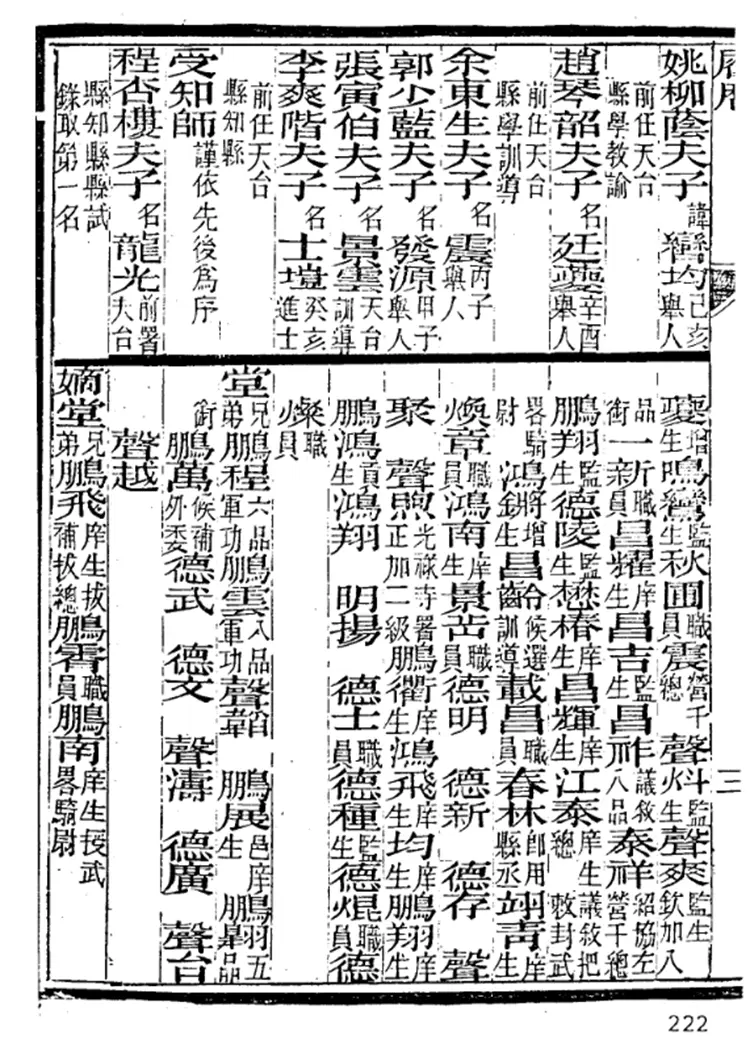 履歷
三
姚柳蔭夫子 諱 均 己亥舉人
前任天台縣學教諭
趙琴韶夫子 名廷夔 辛酉舉人
前任天台縣學訓導
余東生夫子 名震 丙子舉人
郭少藍夫子 名發源 甲子舉人
張寅伯夫子 名景雲 天台訓導
李爽階夫子 名士塏 癸亥進士
前任天台縣知縣
受知師 謹依先後為序
程杏樓夫子 名龍光 前署天台
縣知縣縣試錄取第一名
夔 增生 鳴鸞 監生 秋圃 職員 震 營千總 聲斗 監生 聲爽 監生 欽加八
品銜 一新 職員 昌耀 庠生 昌吉 監生 昌祚 議敘八品 泰祥 紹協左營千總
鵬羽 監生 德陵 監生 懋椿 庠生 昌輝 庠生 江泰 庠生 議敘把總 敕封武
畧騎尉 鴻將 增生 昌齡 候選訓導 載昌 職員 春林 即用縣丞 翊青 庠生
煥章 職員 鴻南 庠生 景 職員 德明 德新 德存 聲
聚 聲煦 光祿寺署正加二級 鵬衢 庠生 鴻飛 庠生 均 庠生 鵬翔 庠生
鵬鴻 貢生 鴻翔 明揚 德士 職員 德種 監生 德焜 職員 德
燦 職員
堂 兄弟 鵬程 六品軍功 鵬雲 八品軍功 聲韜 鵬展 邑庠生 鵬羽 五品
銜 鵬萬 候補外委 德武 德文 聲濤 德廣 聲台
聲越
嫡堂 兄弟 鵬飛 庠生 拔補拔總 鵬霄 職員 鵬南 庠生 授武畧騎尉
222